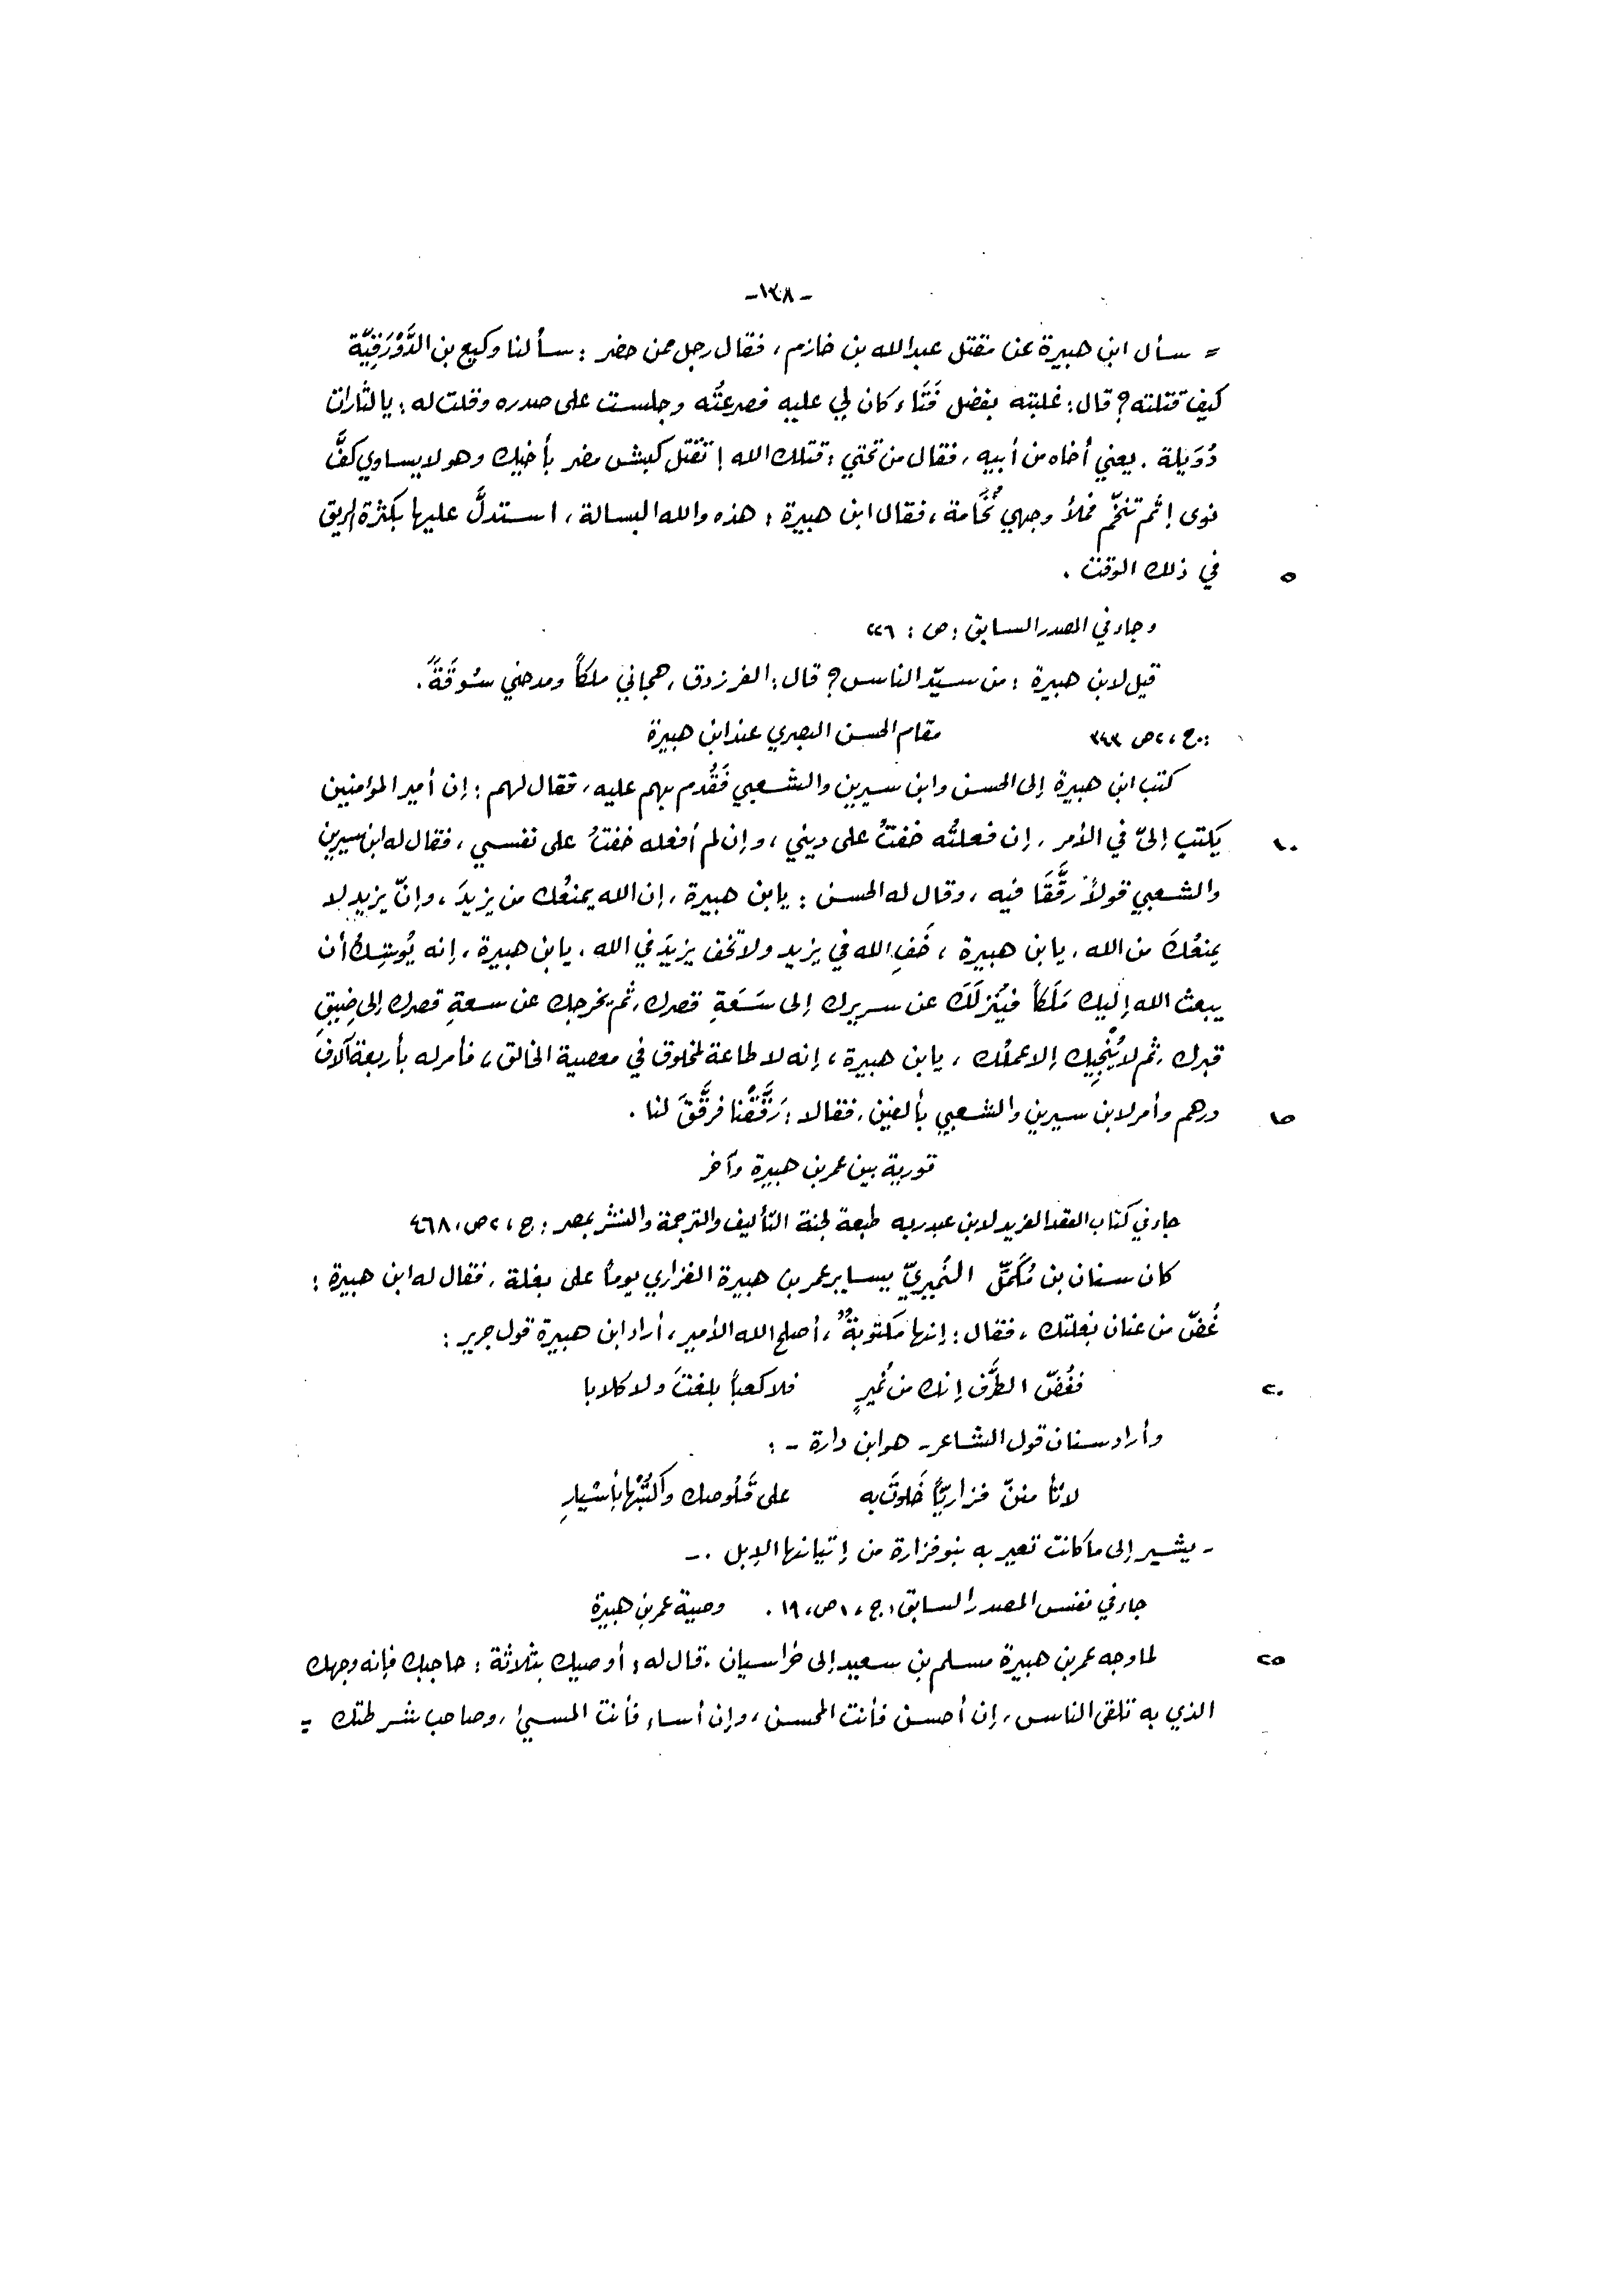 -١٣٨-
= سأل ابن هبيرة عن مقتل عبد الله بن خازم، فقال رجل ممن حضر: سألنا وكيع بن الدَّوْرَقِيَّة
كيف قتلته؟ قال: غلبته بفضل فَتَاء كان لي عليه فصرعتُه وجلست على صدره وقلت له: يا لثارات
دُوَيلة. يعني أخاه من أبيه، فقال من تحتي: قتلك الله! تَقتل كبش مضر بأخيك وهو لا يساوي كفَّ
نوى! ثم تنخّم فملأ وجهي نُخَامة، فقال ابن هبيرة: هذه والله البسالة، استدلَّ عليها بكثرة الريق
٥ في ذلك الوقت.
وجاء في المصدر السابق: ص: ٢٢٦
قيل لابن هبيرة: من سيّد الناس؟ قال: الفرزدق، هجاني ملكاً ومدحني سُوقَةً.
ج، ٢ ص ٣٤٣ مقام الحسن البصري عند ابن هبيرة
كتب ابن هبيرة إلى الحسن وابن سيرين والشعبي فَقُدم بهم عليه، فقال لهم: إن أمير المؤمنين
١٠ يكتب إليّ في الأمر، إن فعلتُه خفتُ على ديني، وإن لم أفعله خفتُ على نفسي، فقال له ابن سيرين
والشعبي قولاً رقَّقَا فيه، وقال له الحسن: يا بن هبيرة، إن الله يمنعُك من يزيدَ، وإنّ يزيد لا
يمنعُكَ من الله، يا بن هبيرة، خَفِ الله في يزيد ولا تخف يزيدَ في الله. يا بن هبيرة، إنه يُوشِكُ أن
يبعث الله إليك مَلَكاً فيُنزلَكَ عن سريرك إلى سَعَةِ قصرك، ثم يخرجك عن سعةِ قصرك إلى ضِيقِ
قبرك، ثم لا يُنْجِيك إلا عملُك، يا بن هبيرة، إنه لا طاعة لمخلوق في معصية الخالق، فأمر له بأربعة آلاف
١٥ درهم وأمر لابن سيرين والشعبي بألفين، فقالا: رَقَّقْنا فرقَّقَ لنا.
تورية بين عمر بن هبيرة وآخر
جاء في كتاب العقد الفريد لابن عبد ربه طبعة لجنة التأليف والترجمة والنشر بمصر: ج، ٢ ص، ٤٦٨
كان سنان بن مُكَمَّل النُميريّ يساير عمر بن هبيرة الفزاري يوماً على بغلة، فقال له ابن هبيرة:
غُضّ من عنان بغلتك، فقال: إنها مكتوبةٌ، أصلح الله الأمير، أراد ابن هبيرة قول جرير:
٢٠ فغُضّ الطَّرْف إنك من نُميرٍ فلا كعباً بلغتَ ولا كلابا
وأراد سنان قول الشاعر - هو ابن دارة -:
لا تأمننّ فزاريّاً خَلوتَ به على قَلُوصك واكْتُبْها بأَسْيارِ
- يشير إلى ما كانت تعير به بنو فزارة من إتيانها الإبل. -
جاء في نفس المصدر السابق، ج، ١ ص، ١٩. وصية عمر بن هبيرة
٢٥ لما وجه عمر بن هبيرة مسلم بن سعيد إلى خراسان، قال له: أوصيك بثلاثة: حاجبك فإنه وجهك
الذي به تلقى الناس، إن أحسن فأنت المحسن، وإن أساء فأنت المسيئ، وصاحب شرطتك =